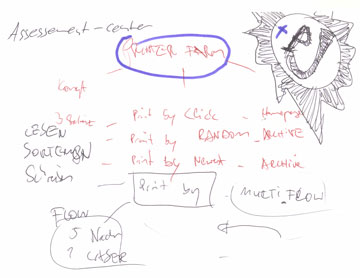 Assessement-center
PRINTER FARM
Konzept
3 Select - Print by Click - Homepage
LESEN - Print by RANDOM - ARCHIVE
SORTIEREN - Print by Newest - Archive
Print by
MULTI_FLOW
FLOW
5 Nadel
? LASER